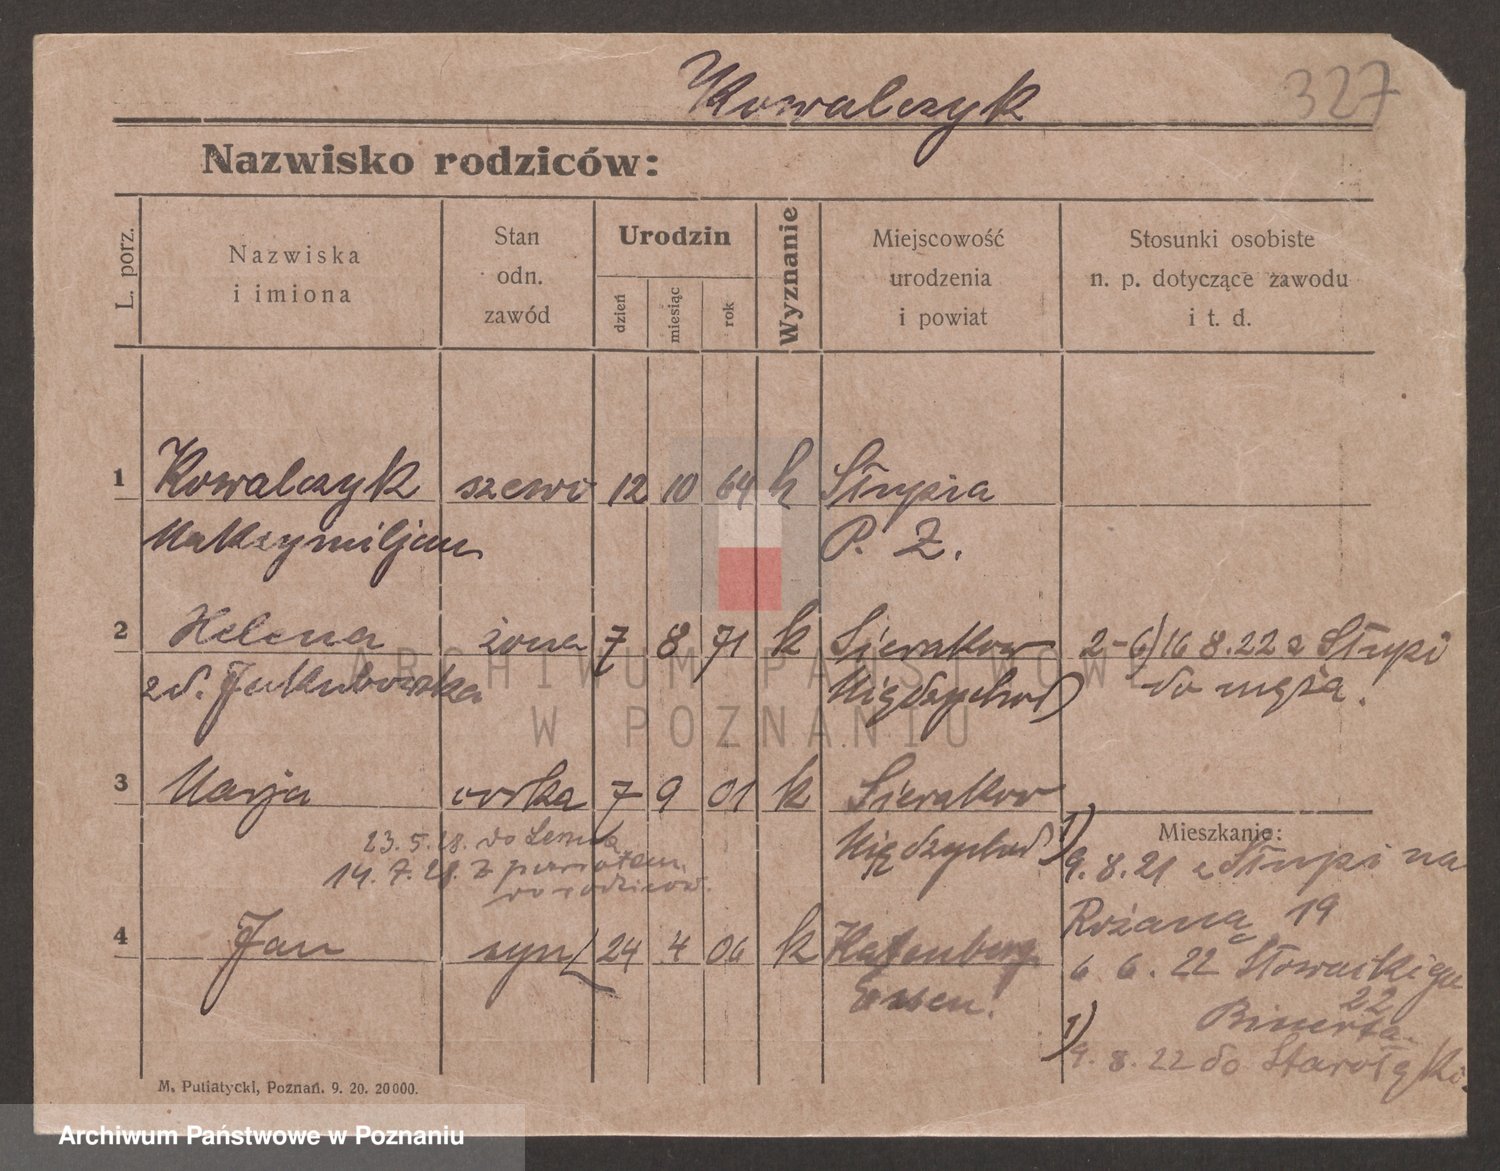 Kowalczyk
327
Nazwisko rodziców:
L. porz.
Nazwiska
i imiona
Stan
odn.
zawód
Urodzin
dzień
miesiąc
rok
Wyznanie
Miejscowość
urodzenia
i powiat
Stosunki osobiste
n. p. dotyczące zawodu
i t. d.
1 Kowalczyk szewc 12 10 64 k Słupia
Maksymiljan P. Z.
2 Helena żona 7 8 71 k Sieraków 2-6) 16 8.22 z Słupi
zd. Jakubowska Międzychod do męża!
3 Marja córka 7 9 01 k Sieraków
Mieszkanie:
23.5.28. do
14.7.28. z powrotem
do rodziców.
Międzychod
1) 9.8.21 z Słupi na
Różana 19
4 Jan syn 24 4 06 k Katenberg
Essen!
6 6.22 Słowackiego
22
1) 9.8.22 do Starołęki
M. Putiatycki, Poznań. 9. 20. 20000.
ARCHIWUM PAŃSTWOWE
W POZNANIU
Archiwum Państwowe w Poznaniu